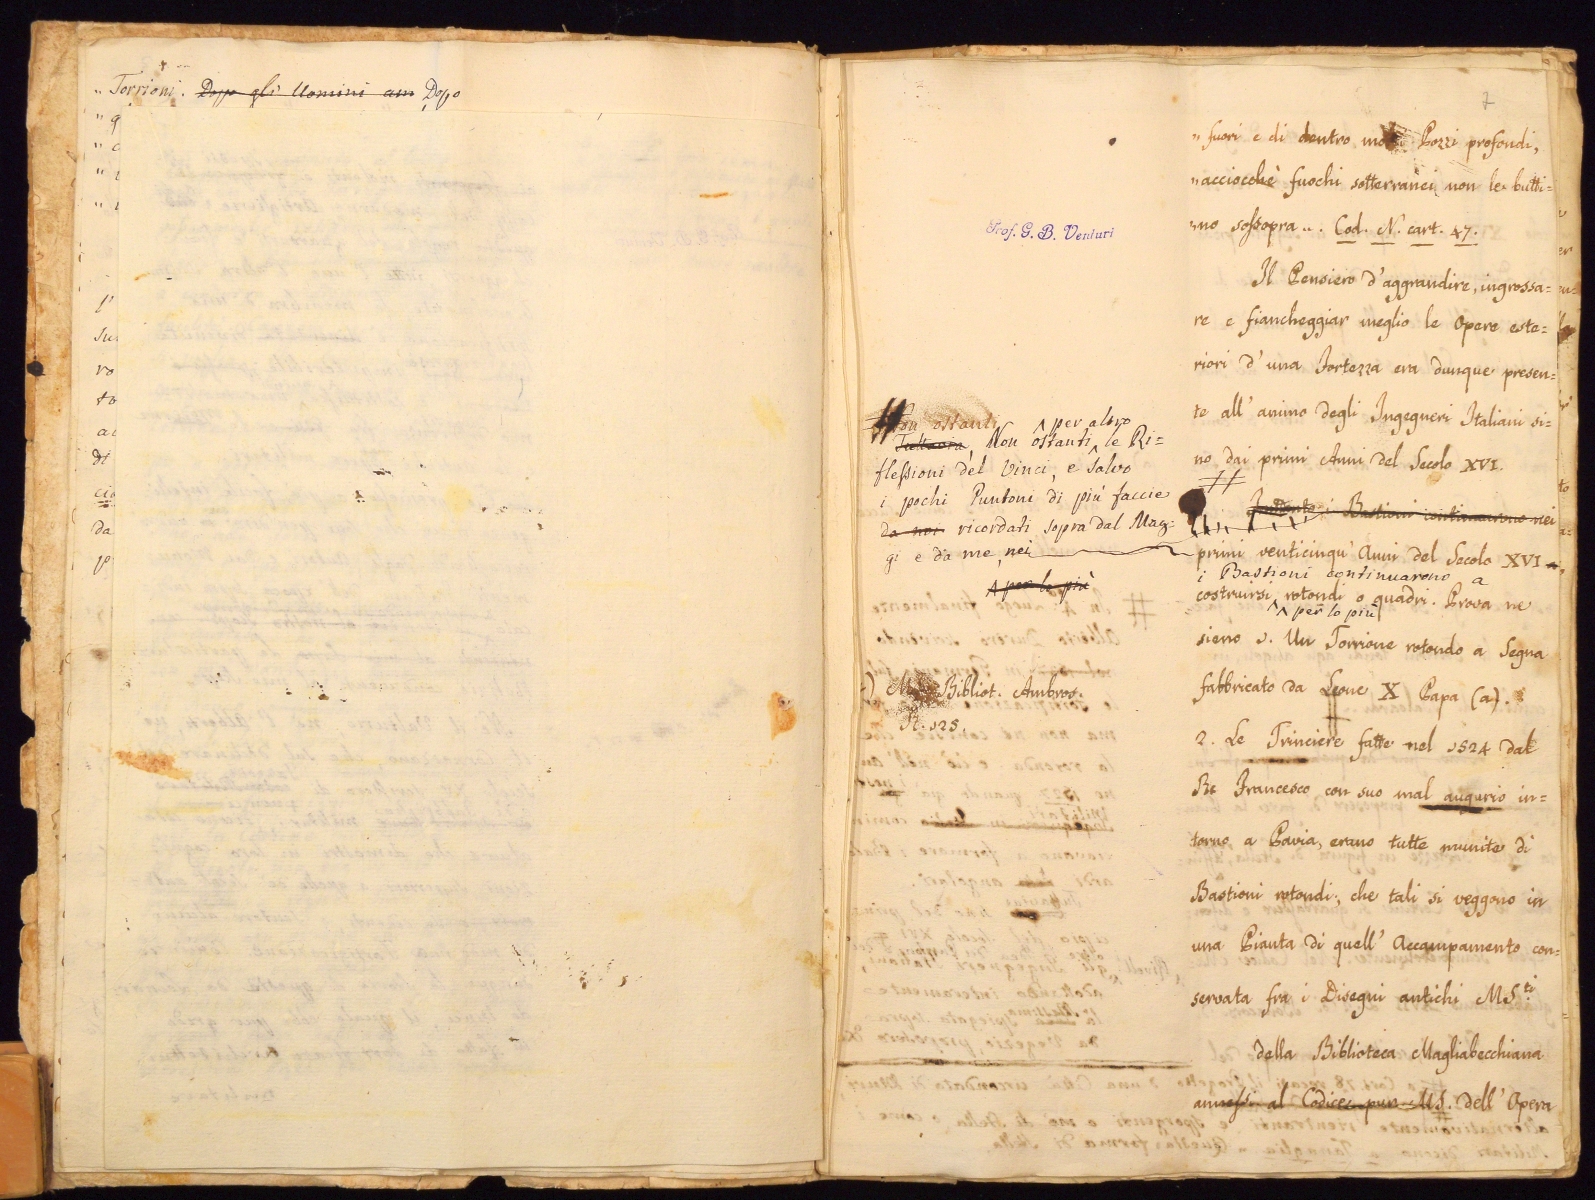 „ Torrioni. Dopo gli Uomini am Dopo
Prof. G. B. Venturi
Non ostanti
Tuttavia, Non ostanti per altro le Ri=
flessioni del Vinci, e salvo
i pochi Puntoni di più faccie
da noi ricordati sopra dal Mag=
gi e da me, nei
per lo più
Bibliot. Ambros.
R. 125.
7
„ fuori e di dentro molti Pozzi profondi,
„ acciocchè fuochi sotterranei non le butti=
„ no sossopra „. Cod. N. cart. 47.
Il Pensiero d'aggrandire, ingrossa=
re e fiancheggiar meglio le Opere este=
riori d'una Fortezza era dunque presen=
te all'animo degli Ingegneri Italiani si=
no dai primi Anni del Secolo XVI.
Intento i Bastioni continuarono nei
primi venticinqu' Anni del Secolo XVI
i Bastioni continuarono a
costruirsi rotondi o quadri. Prova ne
per lo più
sieno 1. Un Torrione rotondo a Segna
fabbricato da Leone X Papa (a).
2. Le Trinciere fatte nel 1524 dal
Re Francesco con suo mal augurio in=
torno a Pavia, erano tutte munite di
Bastioni rotondi; che tali si veggono in
una Pianta di quell' Accampamento con=
servata fra i Disegni antichi MS.ti
della Biblioteca Magliabecchiana
annessi al Codice pur MS. dell' Opera